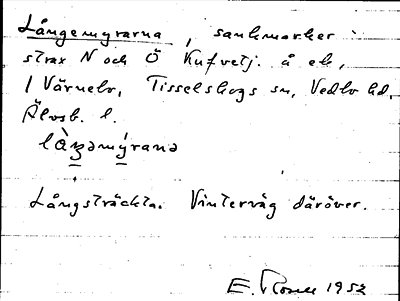 Långemyrarna, sankmarker
strax N och Ö Kufvetj. å ek,
1 Värnebo, Tisselskogs sn, Vedbo hd,
Älvsb. l.
là̱ŋəmýrana
Långsträckta. Vinterväg däröver.
E. Rosell 1952